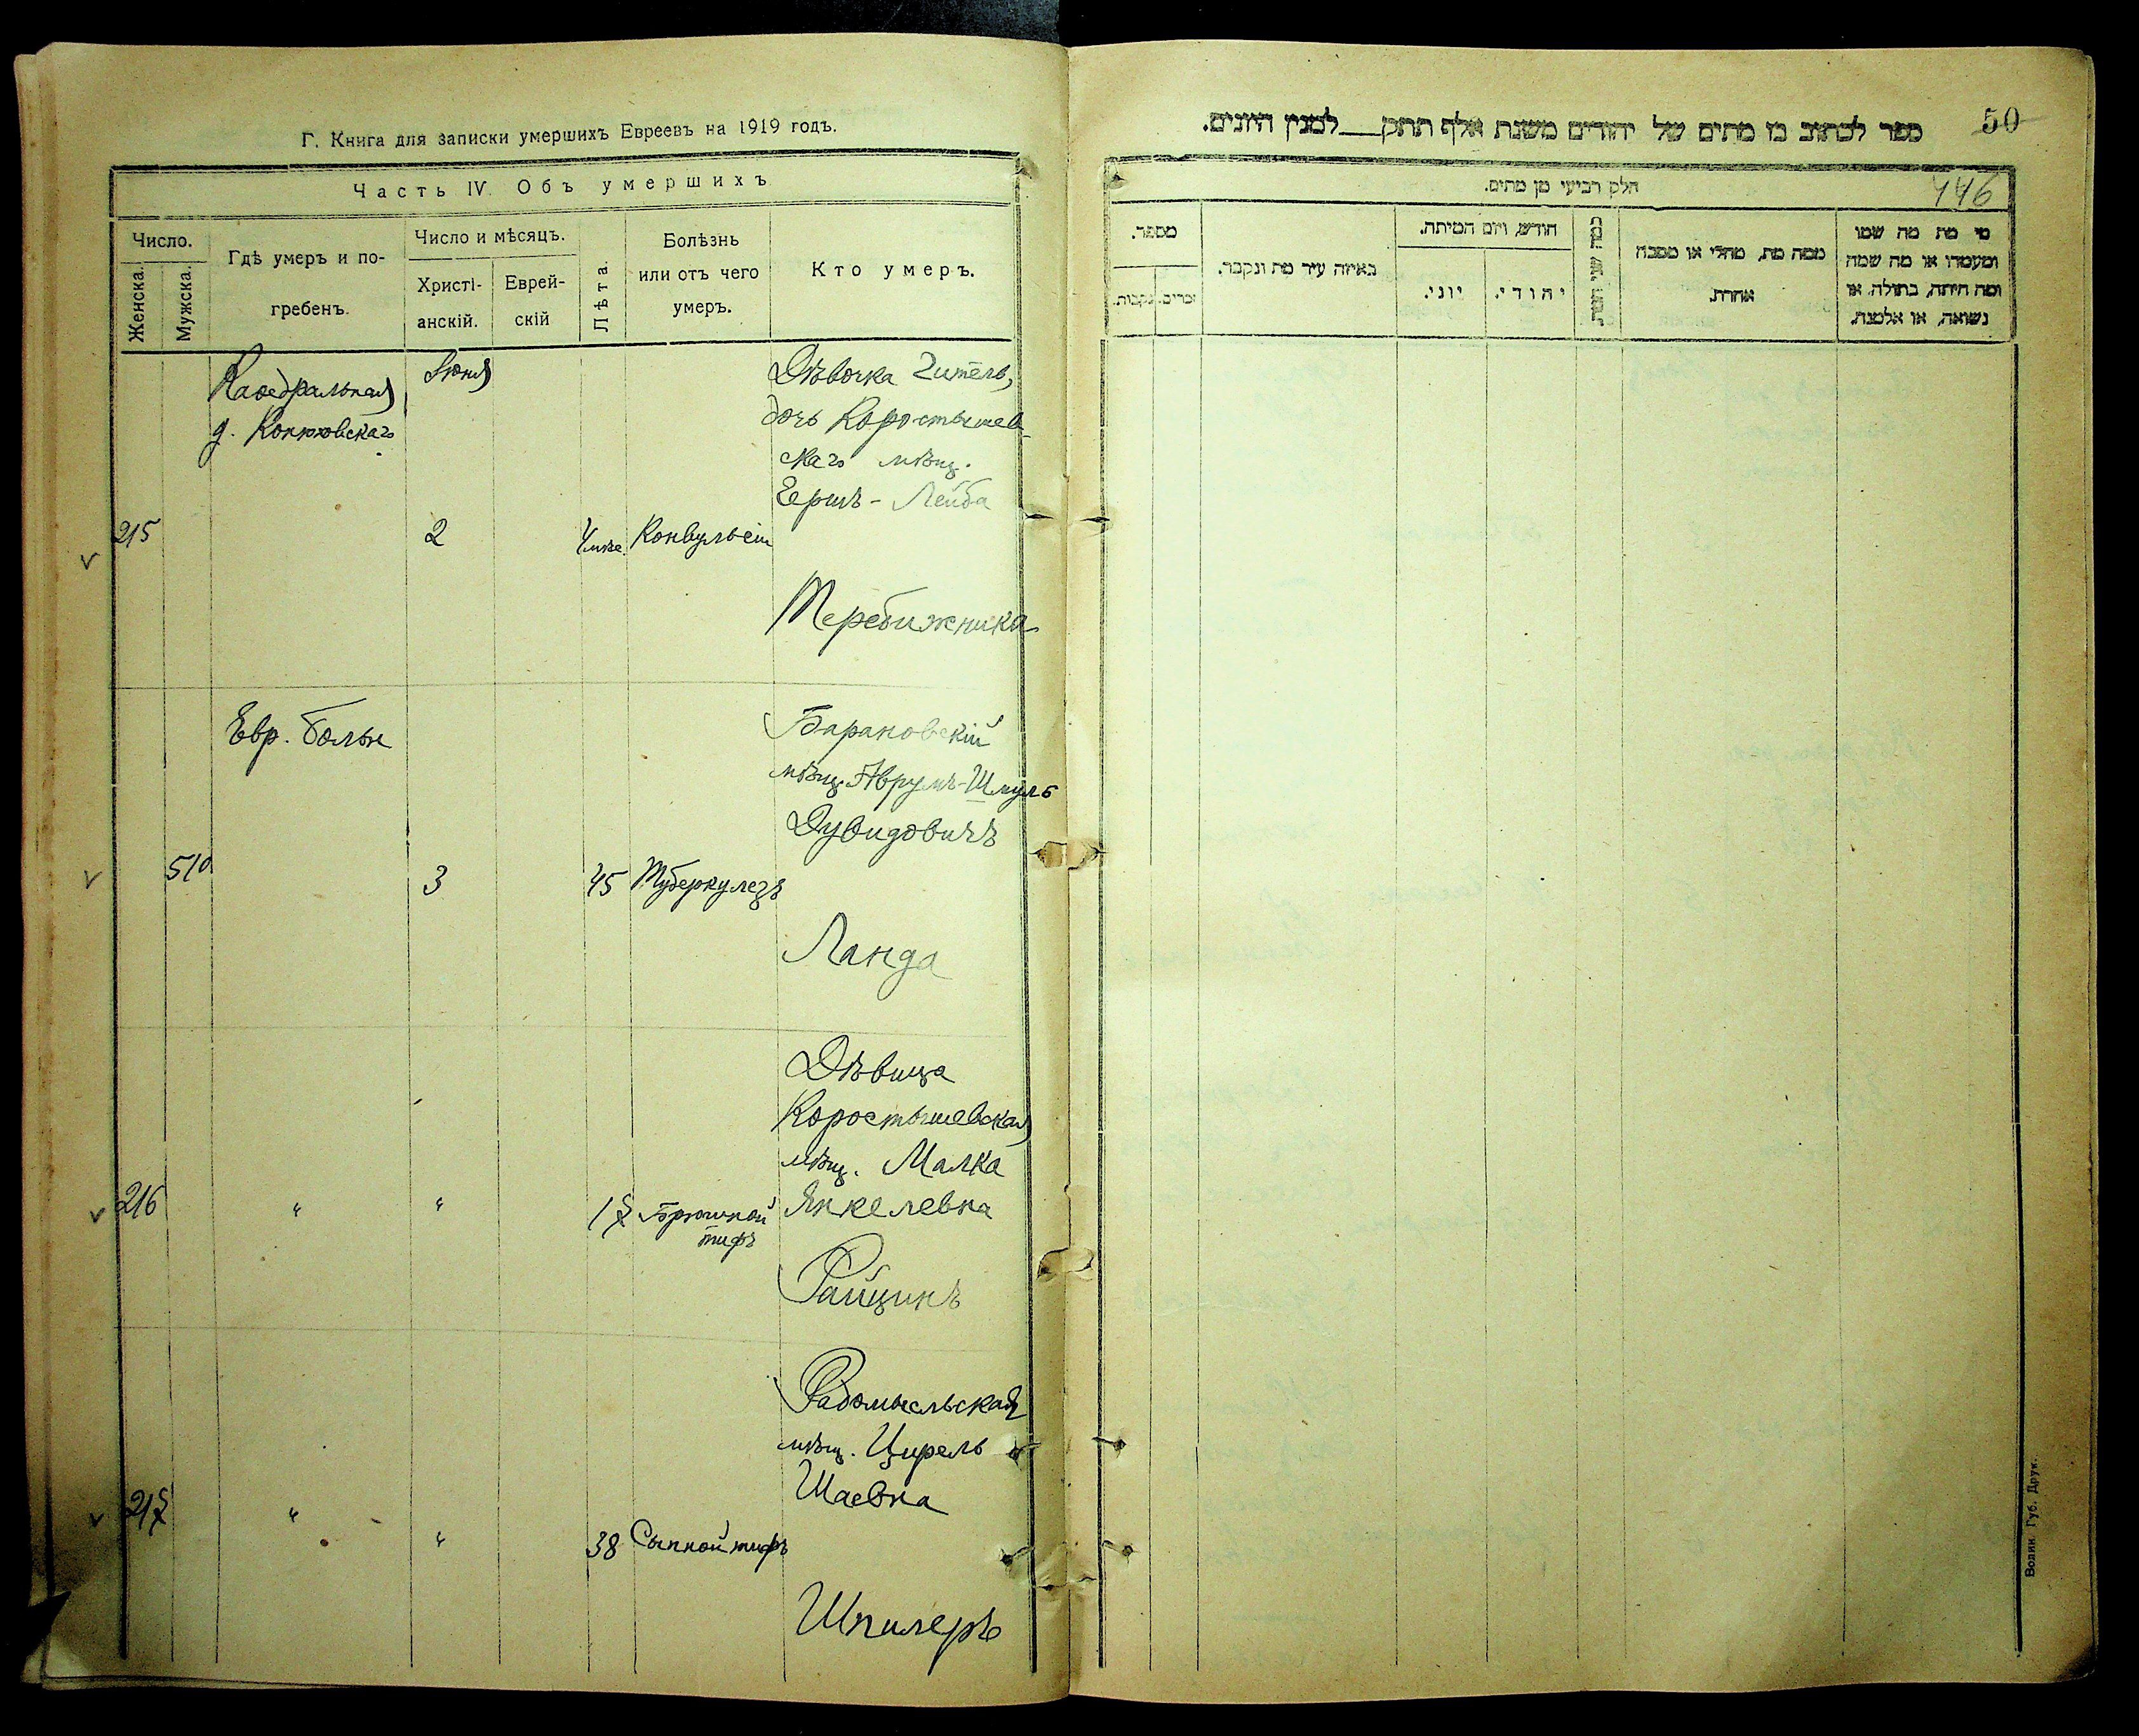 Г. Книга для записки умершихъ Евреевъ на 1919 годъ.
Часть IV. Объ умершихъ
Число.
Женска.
Мужска.
Гдѣ умеръ и по-
гребенъ.
Число и мѣсяцъ.
Христі-
анскій.
Еврей-
скій
Лѣта.
Болѣзнь
или отъ чего
умеръ.
Кто умеръ.
Каѳедральная
д. Конюховскаго
Іюня
Дѣвочка Гитель,
дочь Коростышев-
скаго мѣщ.
Гершъ-Лейба
215
2
4 мѣс.
Конвульсіи
Теребижника
Евр. больн
Барановскій
мѣщ. Аврумъ-Шмуль
Дувидовичъ
510
3
45
Туберкулезъ
Ланда
Дѣвица
Коростышевская
мѣщ. Малка
Янкелевна
216
"
"
17
Брюшной
тифъ
Райцинъ
Радомысльская
мѣщ. Цирель
Шаевна
217
"
"
38
Сыпной тифъ
Шпилеръ
50
ספר לכתוב בו מתים של יהודים משנת אלף תתק___למנין היונים.
446
חלק רביעי מן מתים.
מספר.
נקבות.
זכרים.
באיזה עיר מת ונקבר.
חודש, ויום המיתה.
יוני.
יהודי.
ממה מת, מחלי או מסבה
אחרת.
מי מת מה שמו
ומעמדו או מה שמה
ומה היתה, בתולה, או
נשואה, או אלמנה.
Волин. Губ. Друк.